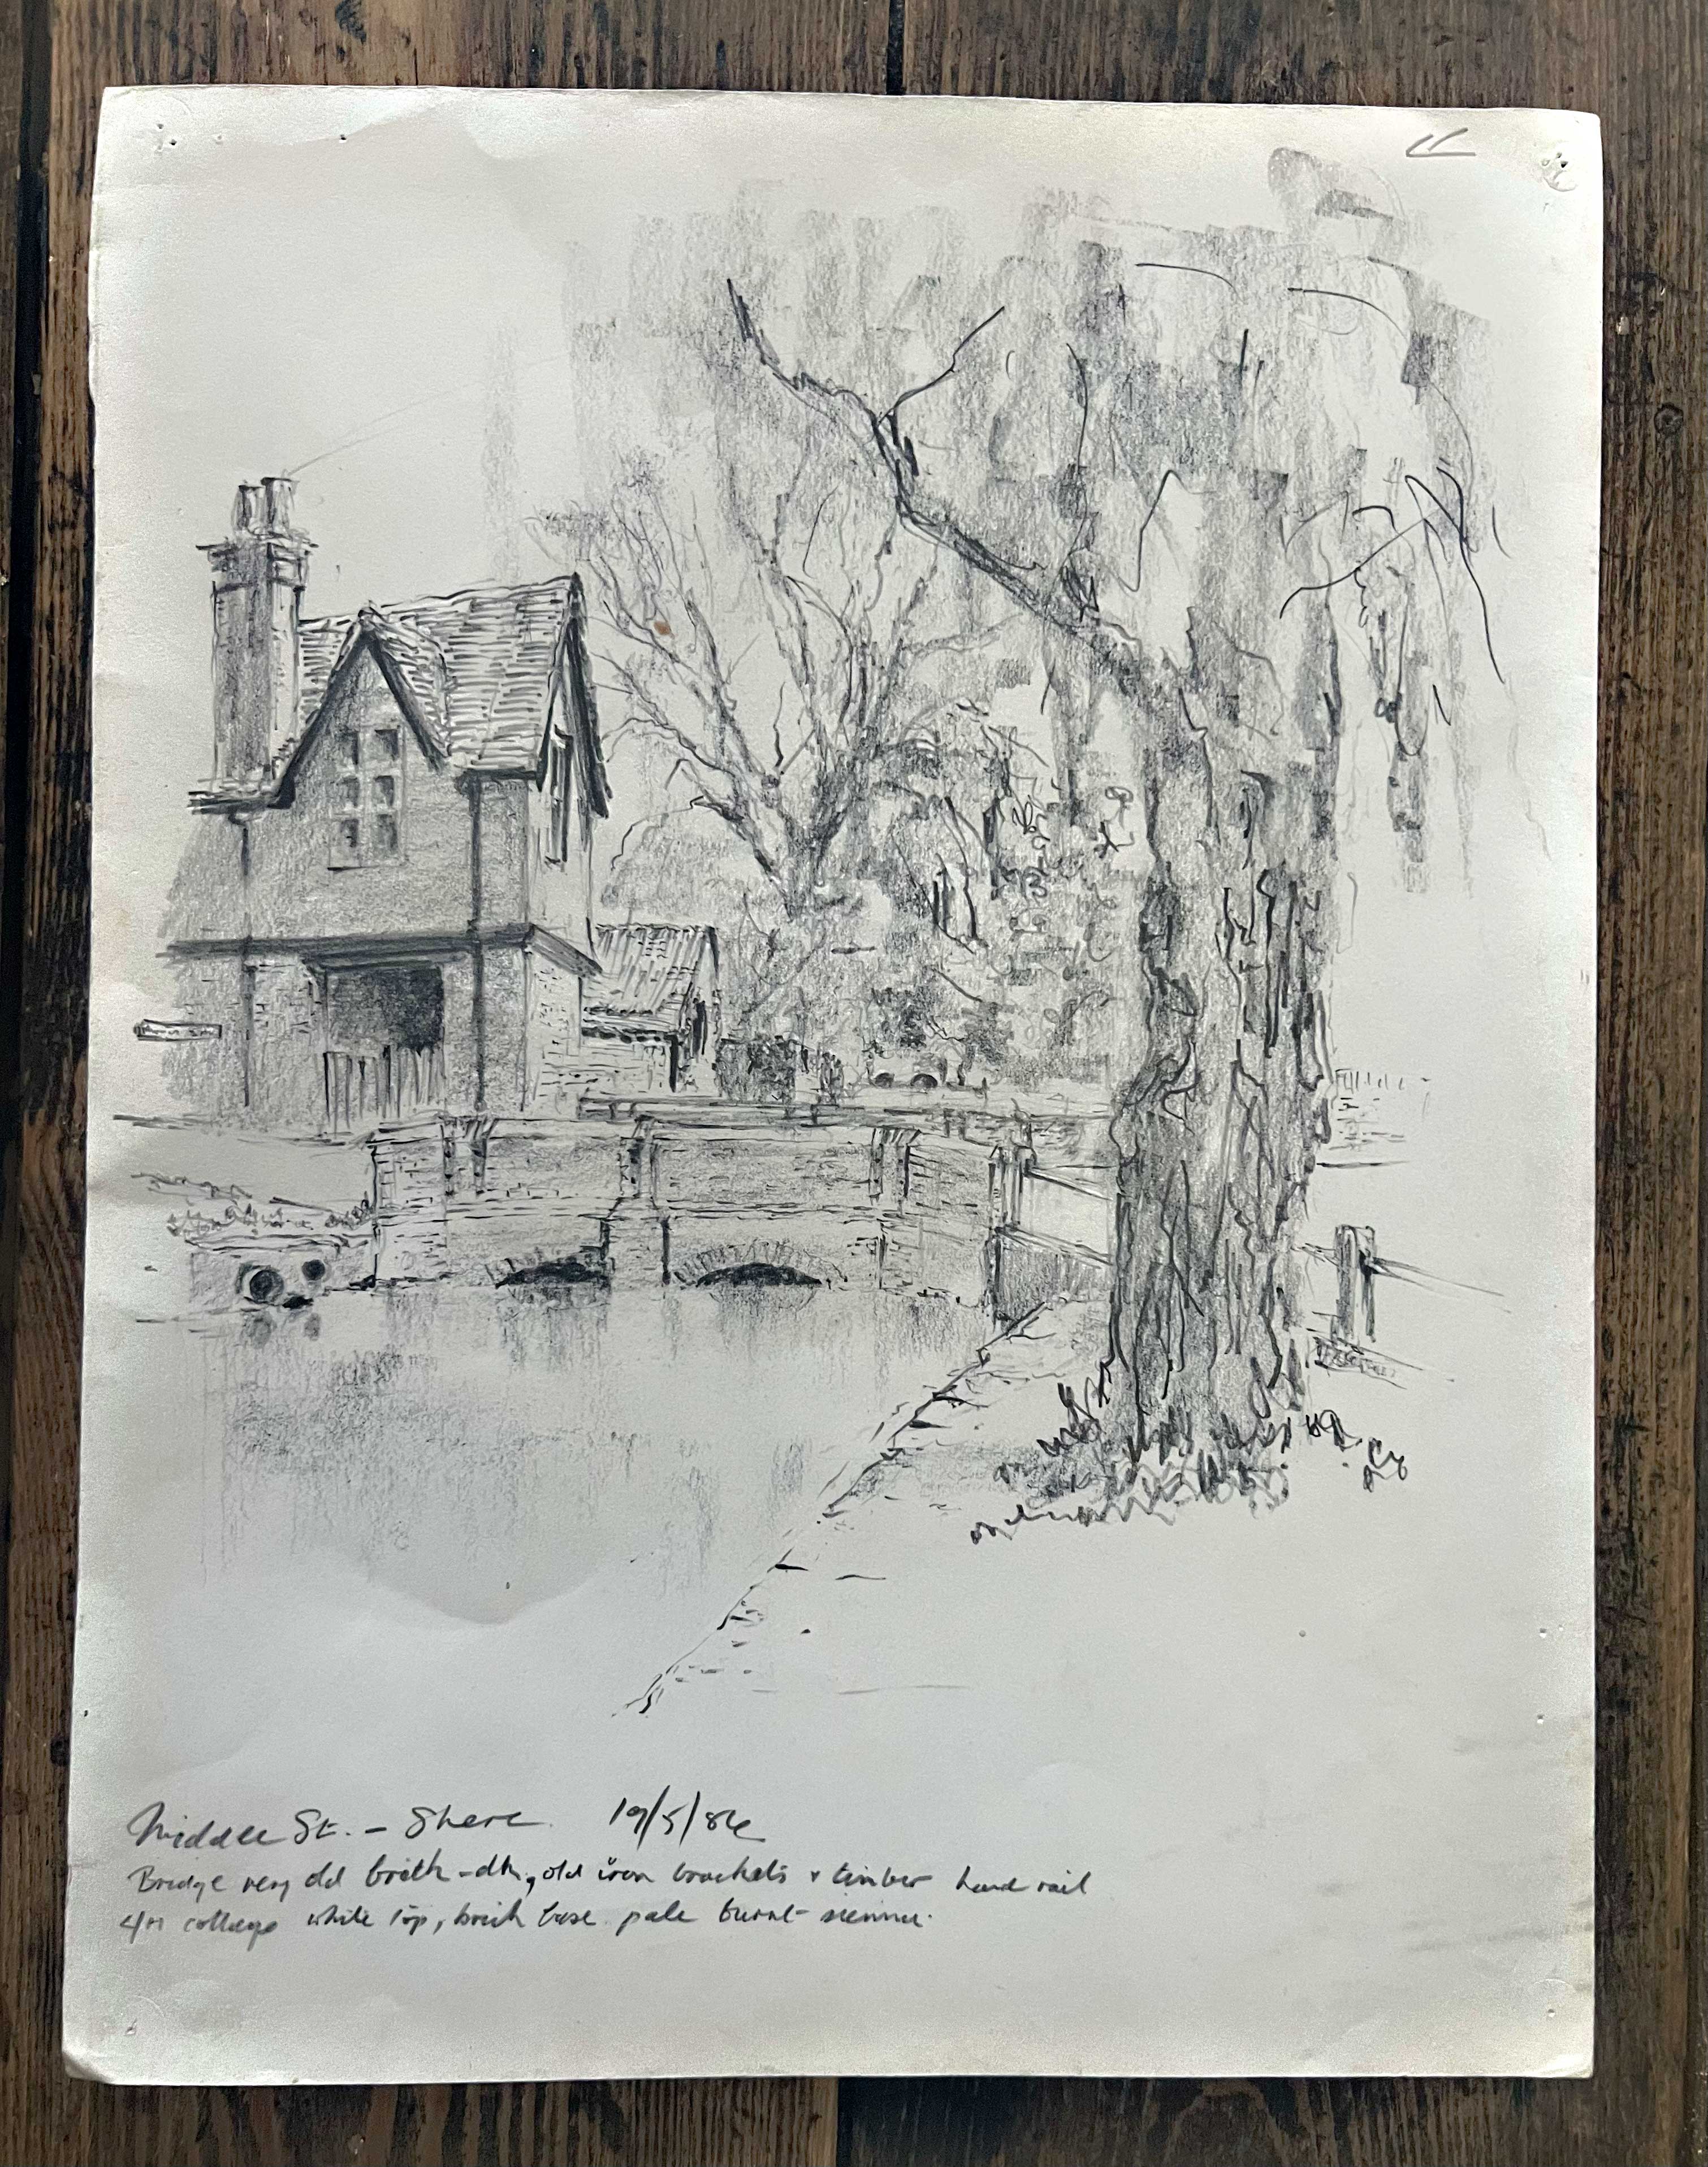 Middle St. – Shere. 19/5/86
Bridge very old brick – dk, old iron brackets + timber hand rail
cottage white top, brick base pale burnt sienna.